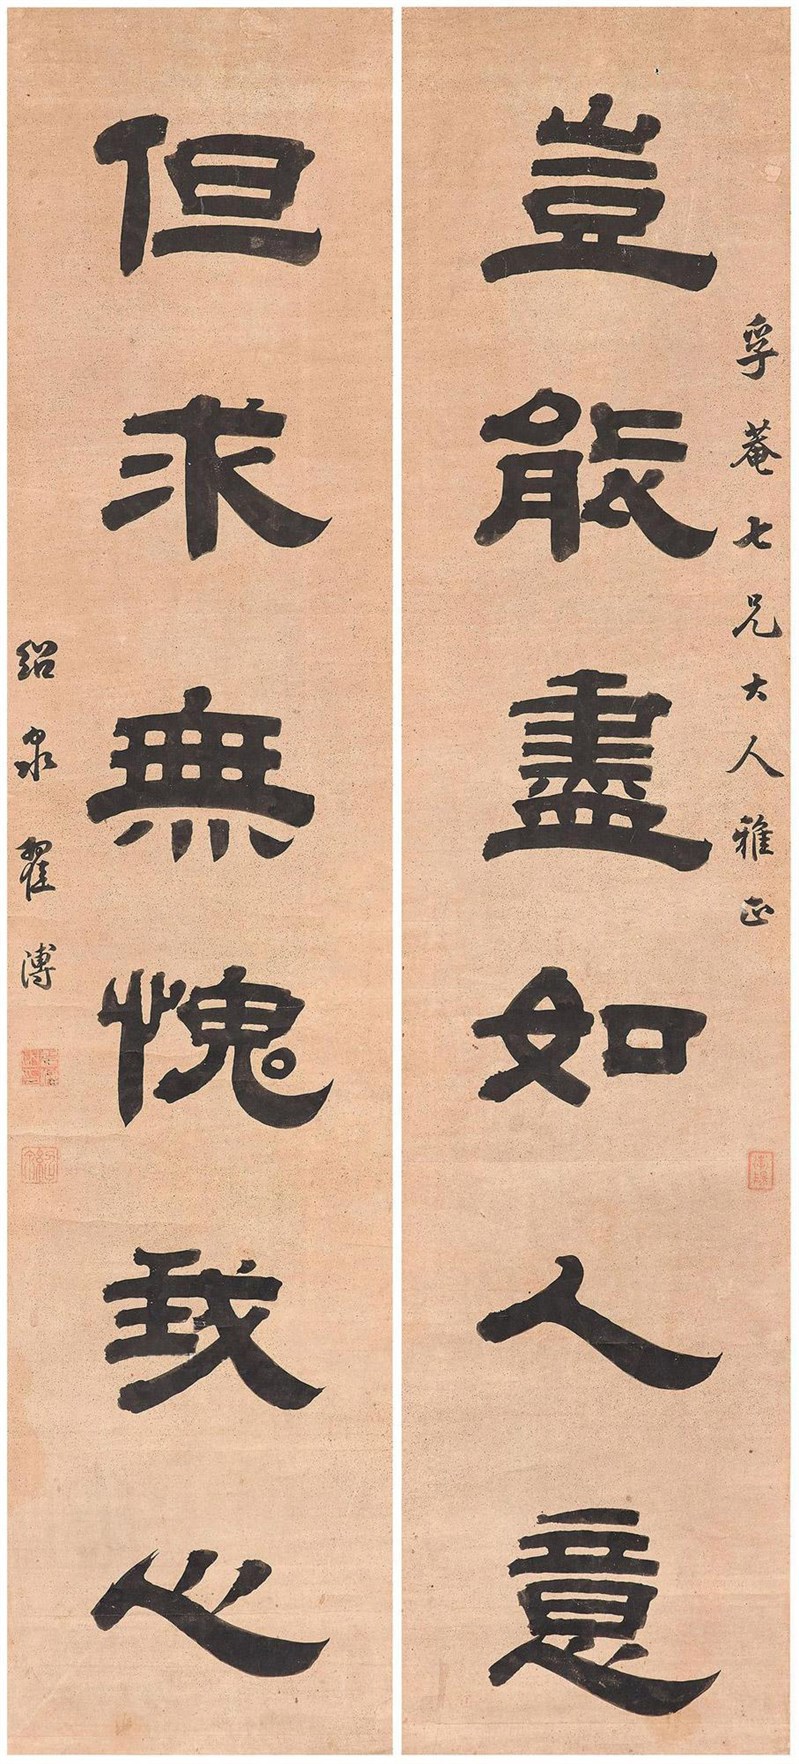 孚菴七兄大人雅正
豈能盡如人意
但求無愧我心
紹泉翟溥